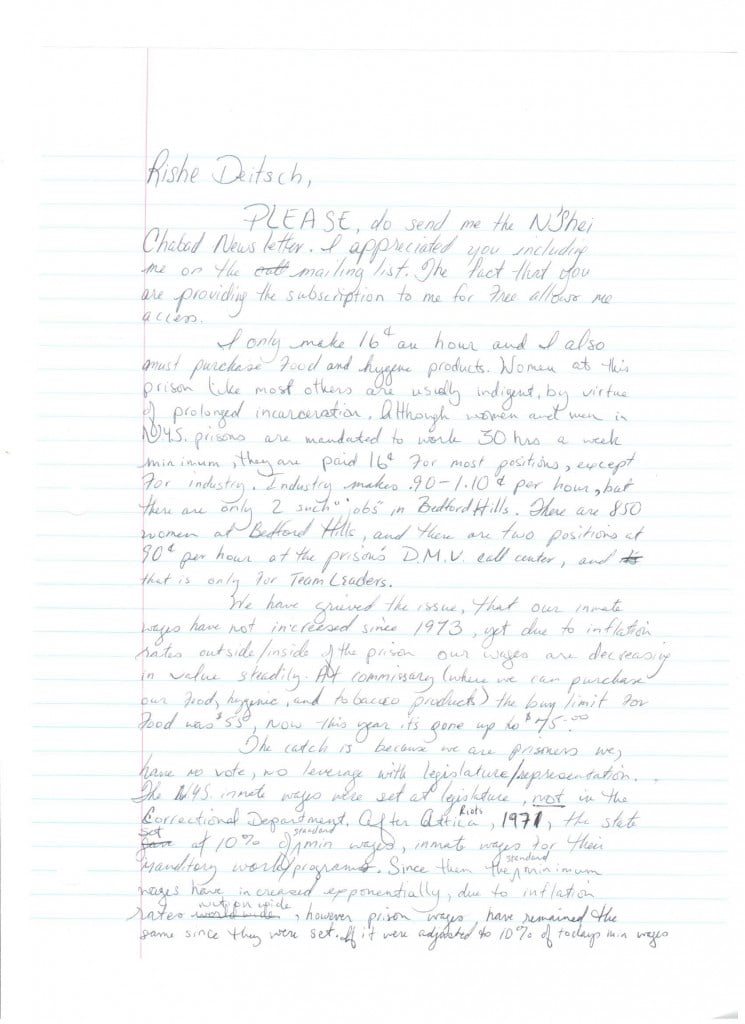 Rishe Deitsch,
PLEASE, do send me the N'Shei
Chabad News letter. I appreciated you including
me on the mailing list. The fact that you
are providing the subscription to me for free allows me
access.
I only make 16¢ an hour and I also
must purchase food and hygene products. Women at this
prison like most others are usually indigent, by virtue
of prolonged incarceration. Although women and men in
N.Y.S. prisons are mandated to work 30 hrs a week
minimum, they are paid 16¢ for most positions, except
for industry. Industry makes .90-1.10¢ per hour, but
there are only 2 such "jobs" in Bedford Hills. There are 850
women at Bedford Hills, and there are two positions at
90¢ per hour at the prison's D.M.V. call center, and
that is only for Team Leaders.
We have grieved the issue, that our inmate
wages have not increesed since 1973, yet due to inflation
rates outside/inside of the prison our wages are decreasing
in value steadily. At commissary (where we can purchase
our food, hygenic, and tobacco products) the buy limit for
food was $55, now this year it's gone up to $75.00
The catch is because we are prisoners we,
have no vote, no leverage with legislature/representation.
The N.Y.S. inmate wages were set at legislature, not in the
Correctional Department. After Attica Riots, 1971, the state
set at 10% of standard min wages, inmate wages for their
manditory work/programs. Since then the standard minimum
wages have increased exponentially, due to inflation
rates nation wide, however prison wages, have remained the
same since they were set. If it were adjusted to 10% of todays min wages